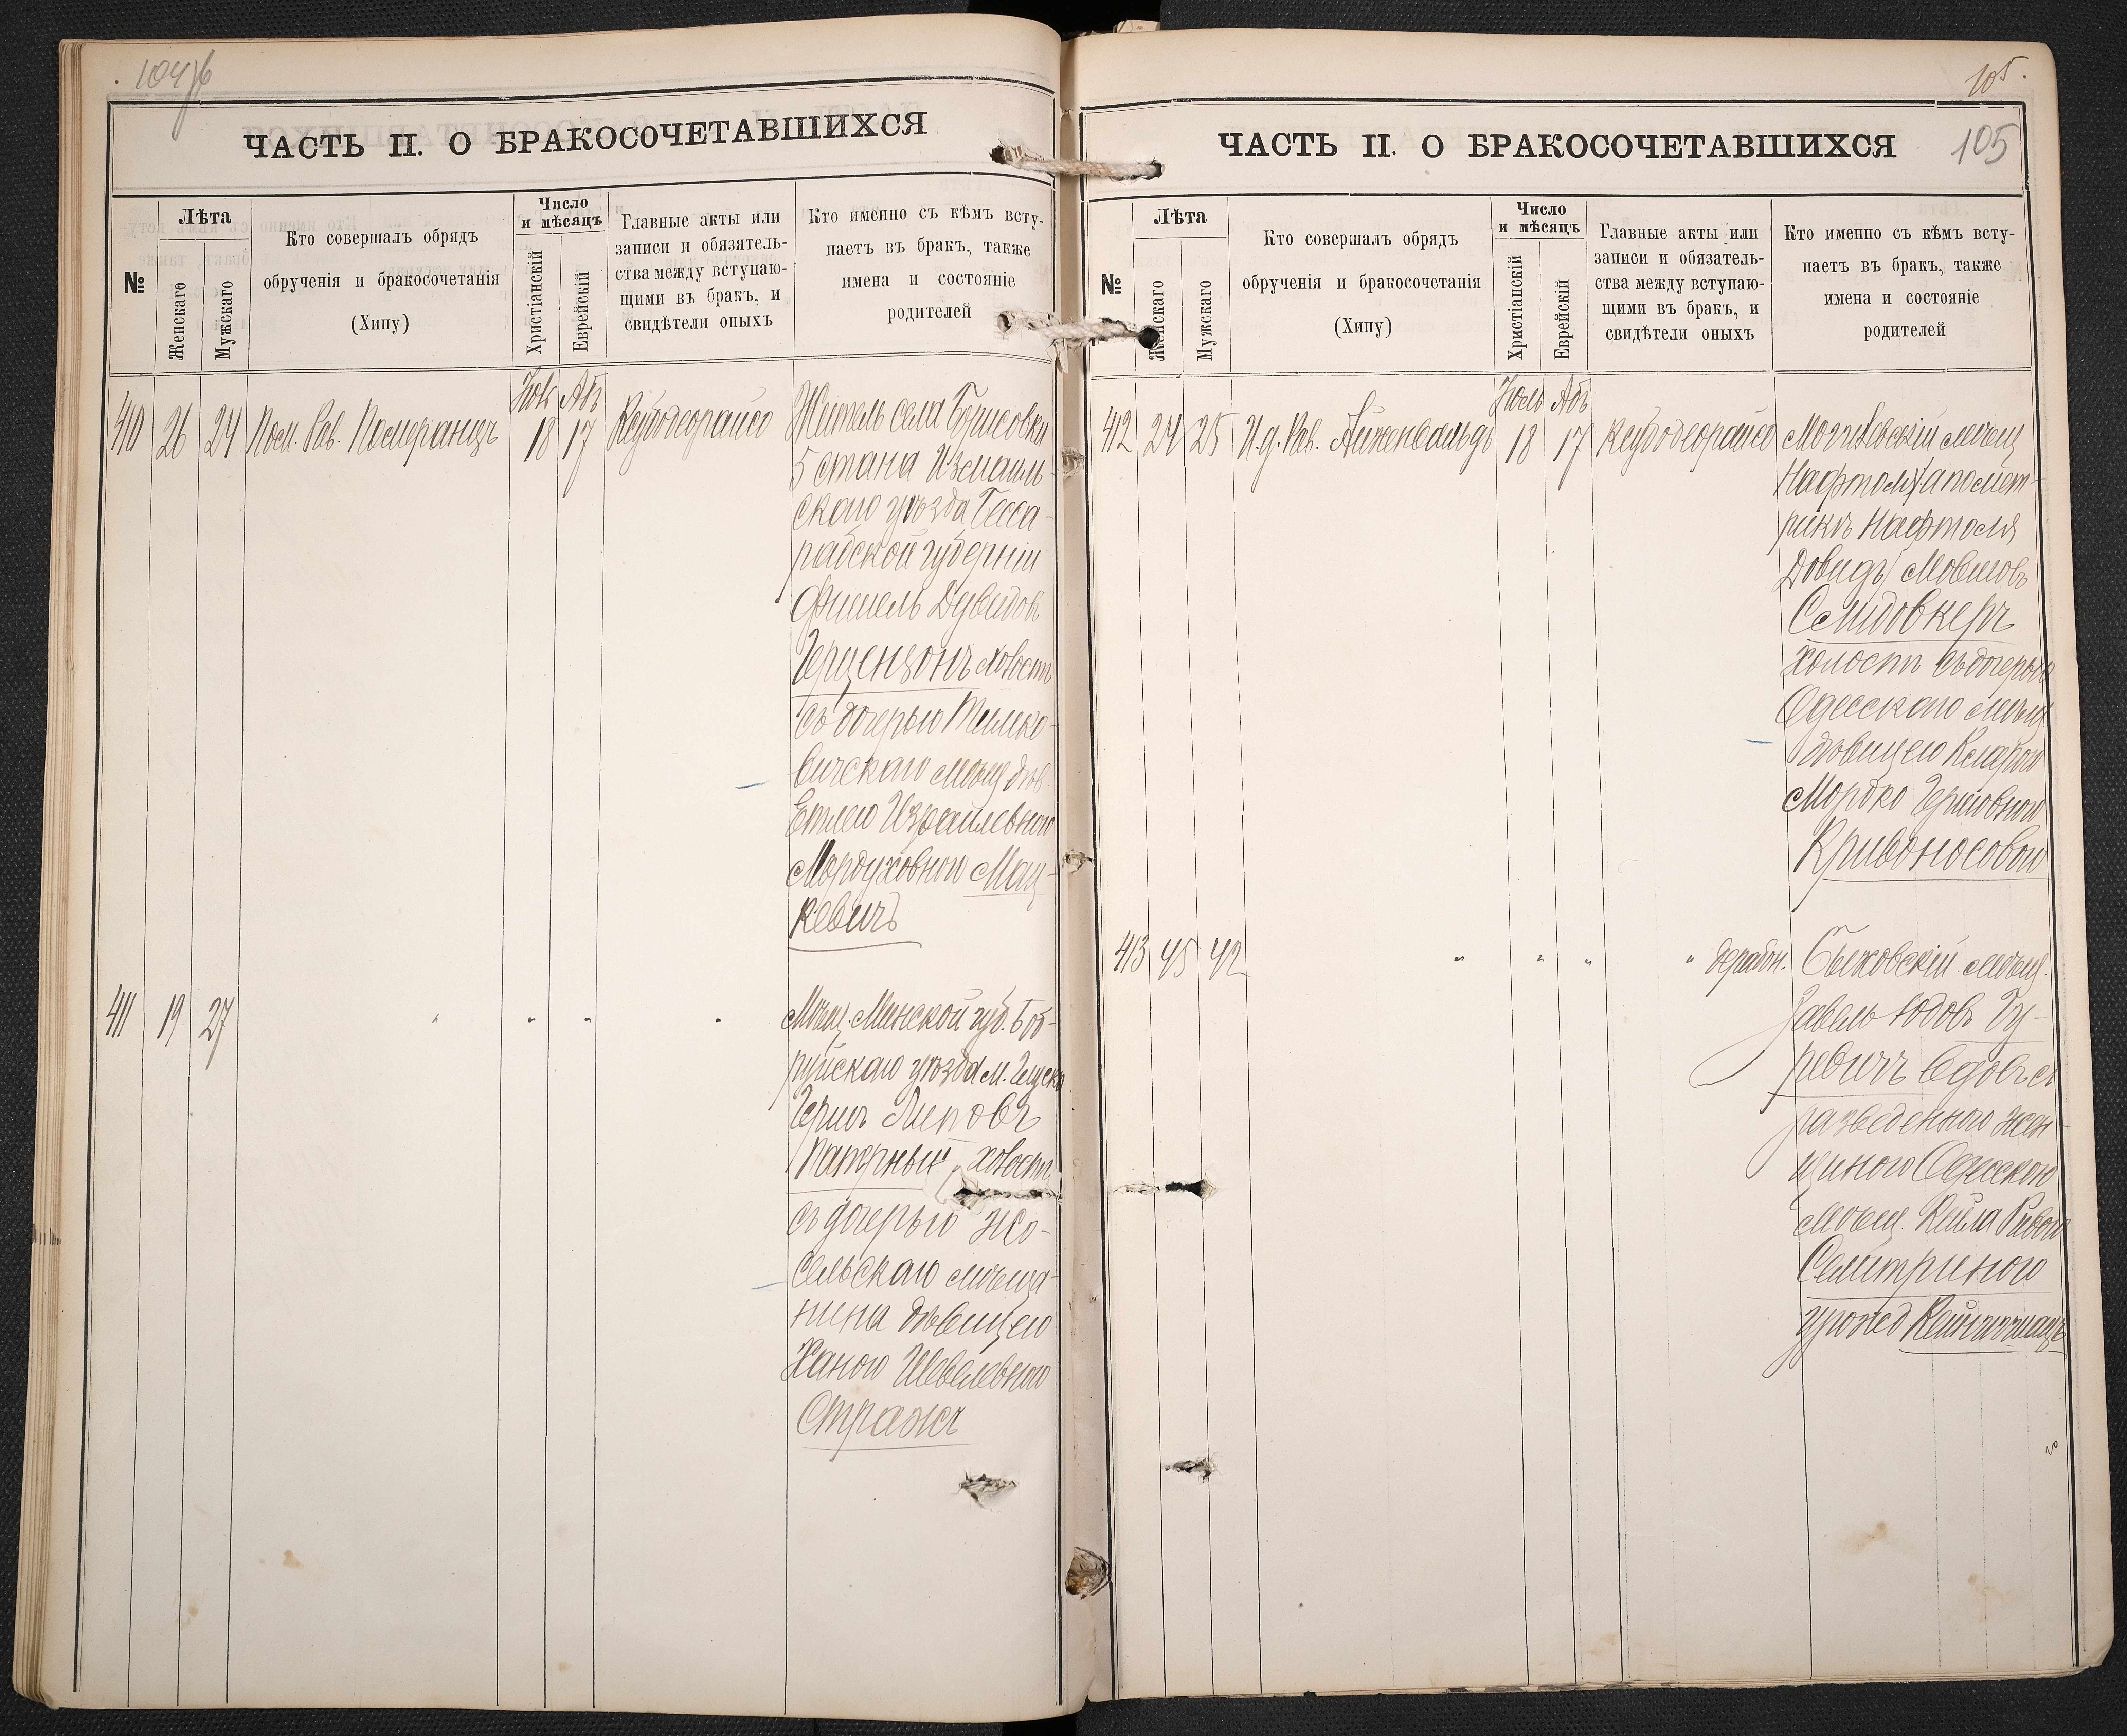 104 об
ЧАСТЬ II. О БРАКОСОЧЕТАВШИХСЯ
№
Лѣта
Женскаго
Мужскаго
Кто совершалъ обрядъ
обрученія и бракосочетанія
(Хипу)
Число
и мѣсяцъ
Христіанскій
Еврейскій
Главные акты или
записи и обязатель-
ства между вступаю-
щими въ бракъ, и
свидѣтели оныхъ
Кто именно съ кѣмъ всту-
паетъ въ бракъ, также
имена и состояніе
родителей
Абъ
410 26 24 Пом. Рав. Померанцъ 18 17
Житель села Борисовки
5 стана Измаиль-
скаго уѣзда Бесса-
рабской губерніи
Фишель Дувидовъ
Герцензонъ холостъ
съ дочерью Тимко-
вичскаго мѣщ дѣв.
Етлею Израилевною
Мордуховною Мац-
кевичъ
411 19 27 " " " "
Мѣщ. Минской губ. Боб-
руйскаго уѣзда м. Глуска
Гершъ Липовъ
Паперный холостъ
съ дочерью Жо-
сельскаго мѣща-
нина дѣвицею
Ханою Шевелевною
Стражъ
105.
ЧАСТЬ II. О БРАКОСОЧЕТАВШИХСЯ 105
№
Лѣта
Женскаго
Мужскаго
Кто совершалъ обрядъ
обрученія и бракосочетанія
(Хипу)
Число
и мѣсяцъ
Христіанскій
Еврейскій
Главные акты или
записи и обязатель-
ства между вступаю-
щими въ бракъ, и
свидѣтели оныхъ
Кто именно съ кѣмъ всту-
паетъ въ бракъ, также
имена и состояніе
родителей
Іюль Абъ
412 24 25 И.д. Рав. Айженвальдъ 18 17 Ксубодеорайсо
Могилевскій мѣщ
Нафтолъ /а по мет-
рикѣ Нафтоля
Довидъ/ Мовшовъ
Смидовкеръ
холостъ съ дочерью
Одесскаго мѣщ
дѣвицею Кларою
Мордко Гершовною
Кривоносовою
413 45 42 " " " "
Быховскій мѣщ.
Завель Юдовъ Гу-
ревичъ вдовъ съ
разведенною жен-
щиною Одесскою
мѣщ. Кейла Ривою
Селитриною
урожд